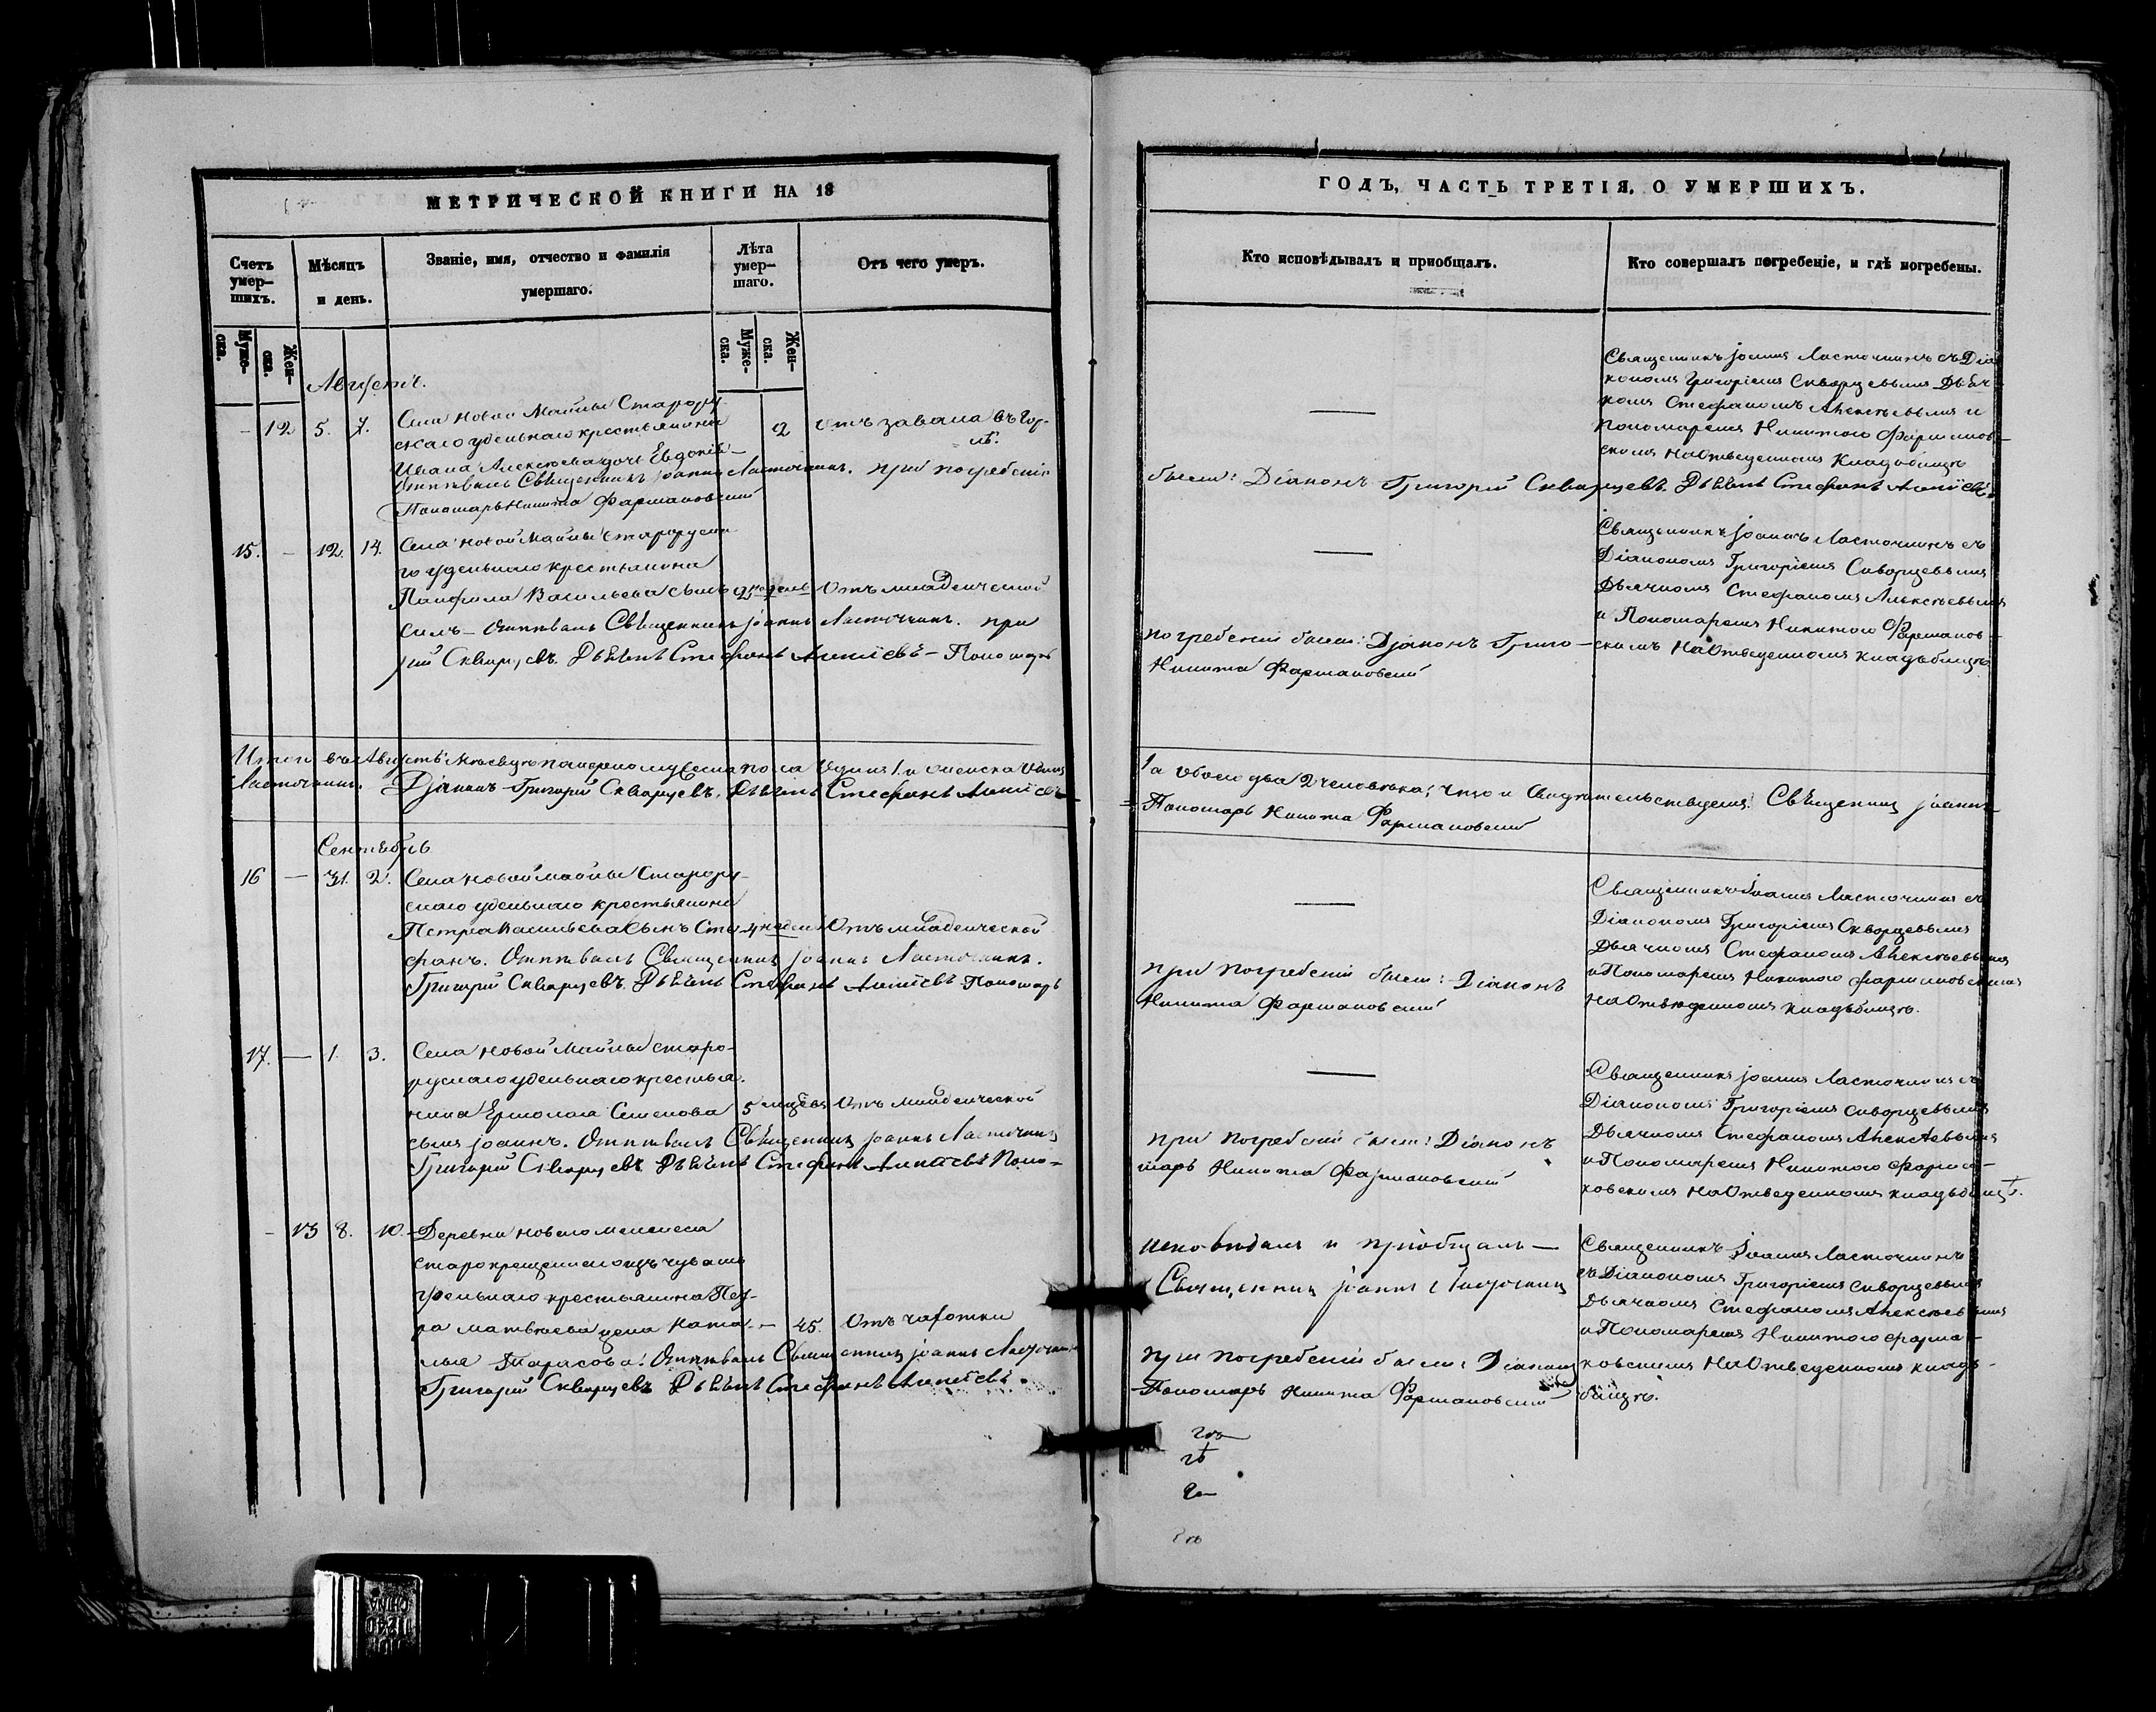 МЕТРИЧЕСКОЙ КНИГИ НА 18
Счетъ умер-шихъ.
Мѣсяцъ и день.
Званіе, имя, отчество и фамилія умершаго.
Лѣта умер-шаго.
Отъ чего умеръ.
Муже-ска.
Жен-ска.
Муже-ска.
Жен-ска.
Августъ.
- 12 5. 7. Села Новой Майны Старору-
скаго удельнаго крестьянина 2 отъ завала въ гор-
лѣ.
Ивана Алексѣева дочь Евдокія
Отпѣвалъ Священникъ Іоаннъ Ласточкинъ. при погребеніи
Пономарь Никита Фармаковскій
15. - 12. 14. Села Новой Майны Старорускa-
го удельнаго крестьянина
Панфила Васильева сынъ недель Отъ младенческой
Силъ - Отпѣвалъ Священникъ Іоаннъ Ласточкинъ. при
рій Скворцевъ. Дьячекъ Стефанъ Алексѣевъ - Пономарь
Итого въ Августѣ мѣсяцѣ померло мужеска пола одинъ 1. и женска одна
Ласточкинъ. Діаконъ Григорій Скворцевъ. Дьячекъ Стефанъ Алексѣевъ
Сентябрь
16 - 31. 2. Села Новой Майны Старору-
скаго удельнаго крестьянина
Петра Васильева сынъ Сте- 4 недел Отъ младенческой
фанъ. Отпѣвалъ Священникъ Іоаннъ Ласточкинъ.
Григорій Скворцевъ. Дьячекъ Стефанъ Алексѣевъ Пономарь
17. - 1. 3. Села Новой Майны старо-
рускаго удельнаго крестья-
нина Ермолая Семенова 5 месецъ Отъ младенческой
сынъ Іоаннъ. Отпѣвалъ Священникъ Іоаннъ Ласточкинъ
Григорій Скворцевъ Дьячекъ Стефанъ Алексѣевъ Поно-
- 13 8. 10. Деревни Новаго Мелекеса
старокрещенныхъ изъ чувашъ
удельнаго крестьянина Пет-
ра Матвѣева жена Ната- - 45. Отъ чахотки
лья Тарасова. Отпѣвалъ Священникъ Іоаннъ Ласточкинъ
Григорій Скворцевъ Дьячекъ Стефанъ Алексѣевъ.
ГОДЪ, ЧАСТЬ ТРЕТІЯ, О УМЕРШИХЪ.
Кто исповѣдывалъ и пріобщалъ.
Кто совершалъ погребеніе, и гдѣ погребены.
Священникъ Іоаннъ Ласточкинъ съ Діа-
кономъ Григоріемъ Скворцевымъ Дьяч-
комъ Стефаномъ Алексѣевымъ и
Пономаремъ Никитою Фармаков-
скимъ на Отведенномъ Кладбищѣ
были: Діаконъ Григорій Скворцевъ. Дьячекъ Стефанъ Алексѣевъ
Священникъ Іоаннъ Ласточкинъ съ
Діакономъ Григоріемъ Скворцевымъ
Дьячкомъ Стефаномъ Алексѣевымъ
и Пономаремъ Никитою Фармаков-
погребеніи были: Діаконъ Григо- скимъ на Отведенномъ кладбищѣ
Никита Фармаковскій
1 а обоего два 2 человѣка; что и свидѣтельствуемъ: Священникъ Іоаннъ
Пономарь Никита Фармаковскій
Священникъ Іоаннъ Ласточкинъ съ
Діакономъ Григоріемъ Скворцевымъ
Дьячкомъ Стефаномъ Алексѣевымъ
при погребеніи были: Діаконъ и Пономаремъ Никитою Фармаковскимъ
Никита Фармаковскій на Отведенномъ кладбищѣ.
Священникъ Іоаннъ Ласточкинъ съ
Діакономъ Григоріемъ Скворцевымъ
при погребеніи были: Діаконъ Дьячкомъ Стефаномъ Алексѣевымъ
марь Никита Фармаковскій и Пономаремъ Никитою Фарма-
ковскимъ на Отведенномъ кладбищѣ.
Исповѣдалъ и пріобщалъ - Священникъ Іоаннъ Ласточкинъ
Священникъ Іоаннъ Ласточкинъ съ Діакономъ Григоріемъ Скворцевымъ
Дьячкомъ Стефаномъ Алексѣевымъ
и Пономаремъ Никитою Фарма-
при погребеніи были: Діаконъ ковскимъ на Отведенномъ клад-
Пономарь Никита Фармаковскій бищѣ.